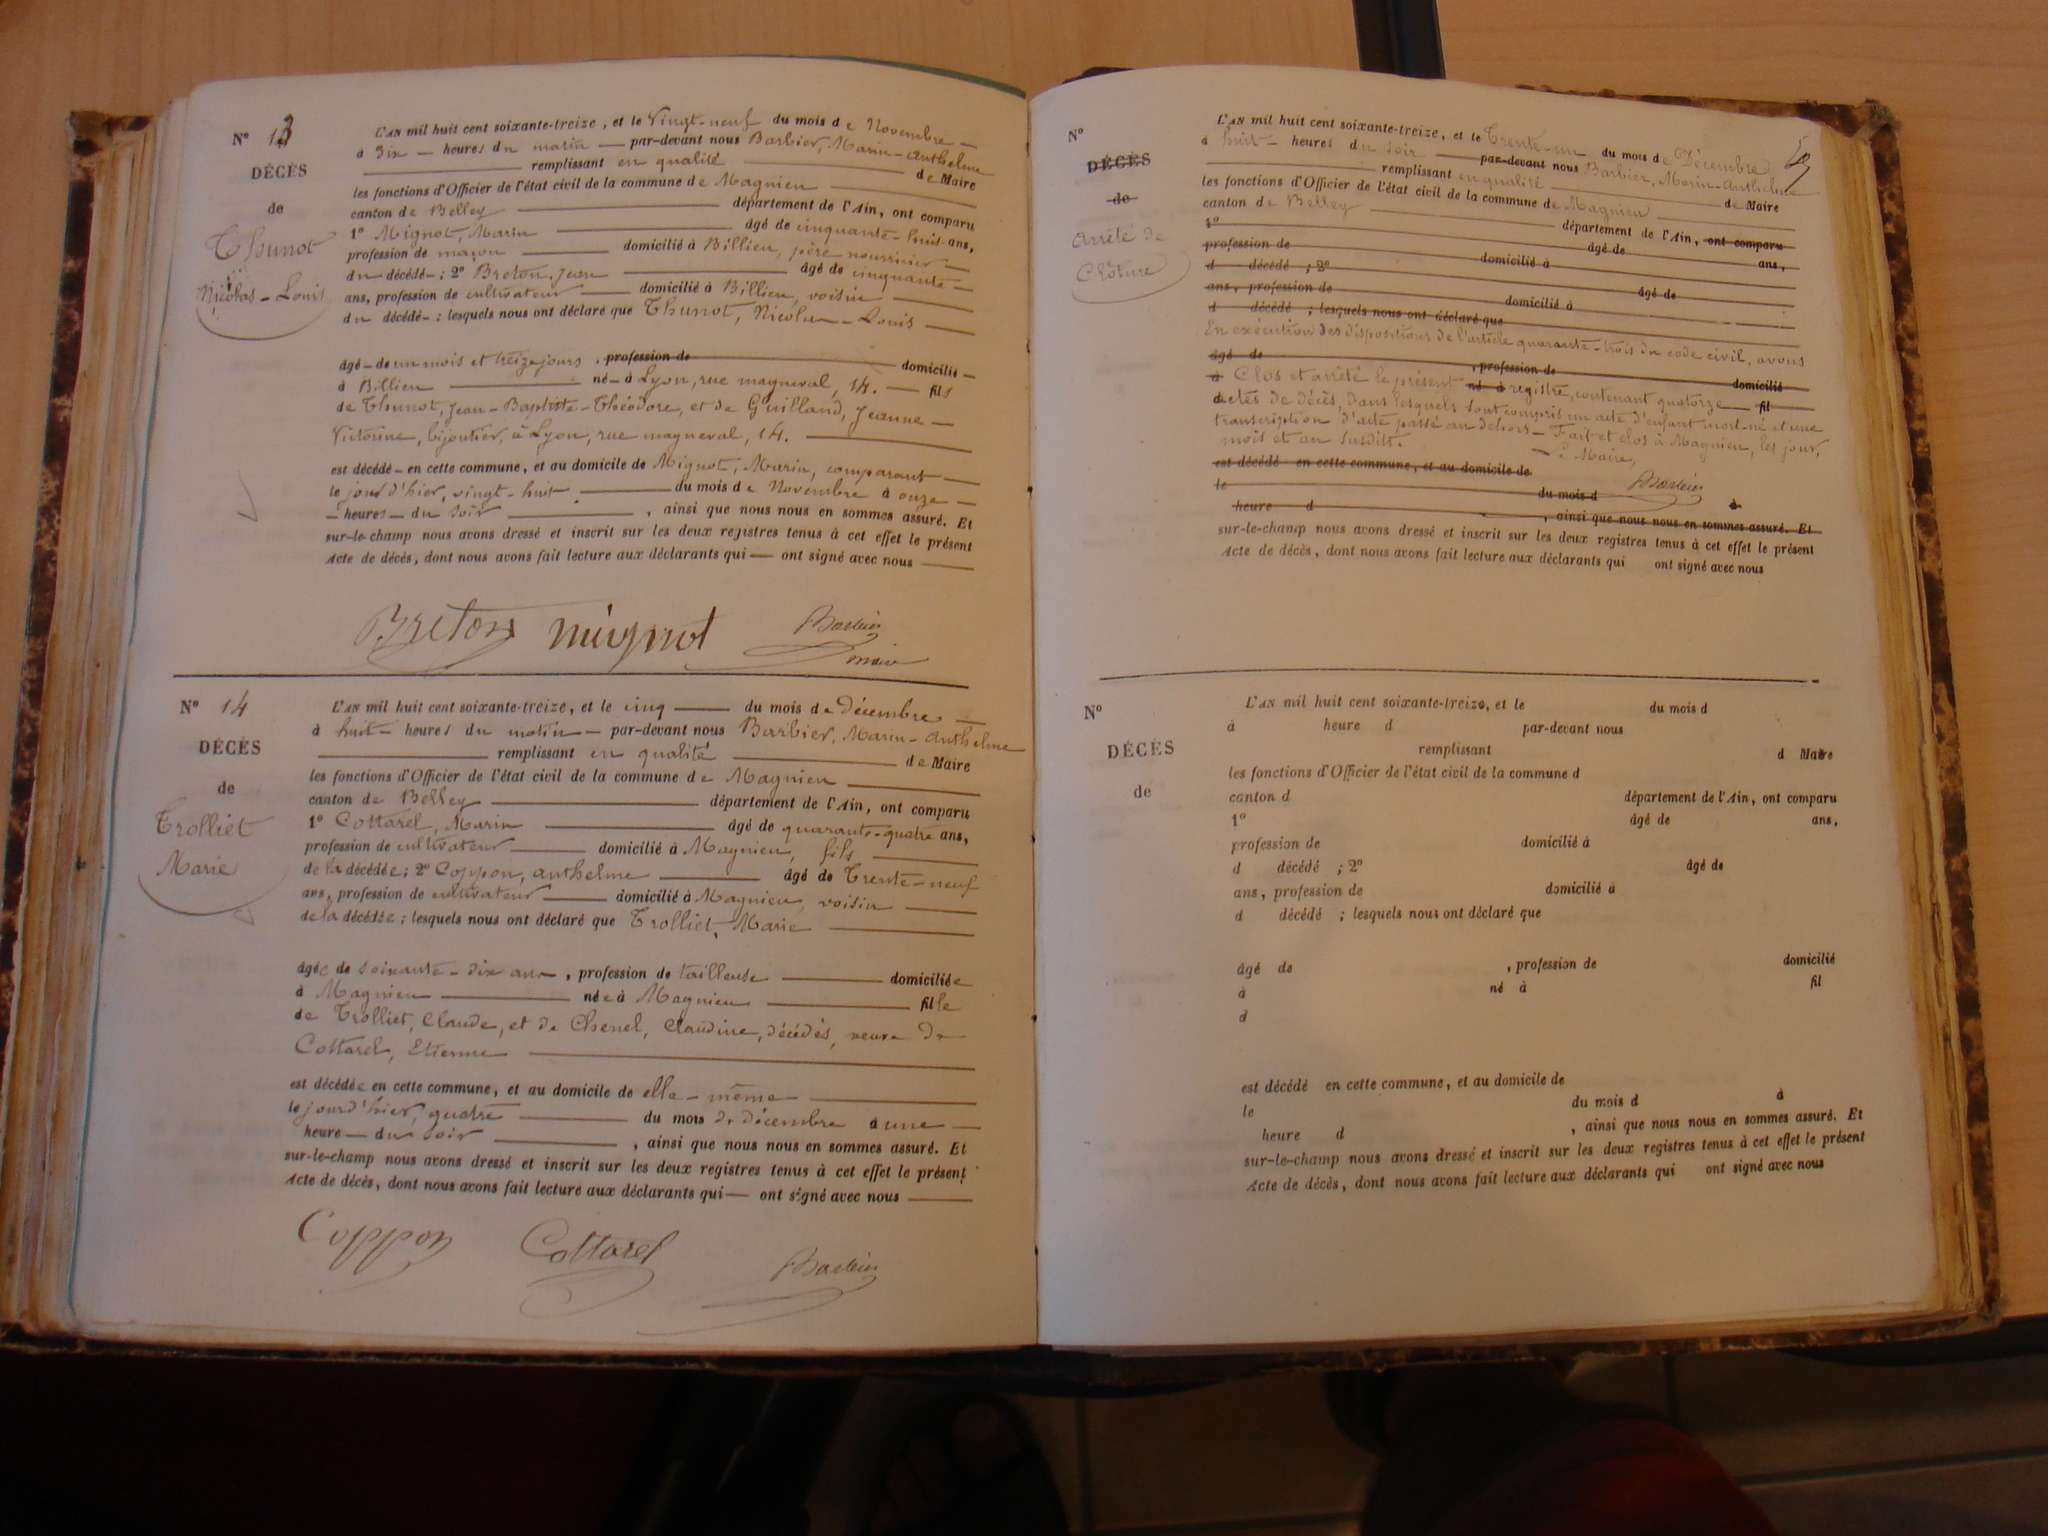 N° 13
DÉCÈS
de
Thunot
Nicolas-Louis
L'AN mil huit cent soixante-treize, et le Vingt-neuf du mois de Novembre
à Dix heures du matin par-devant nous Barbier, Marin-Anthelme
remplissant en qualité de Maire
les fonctions d'Officier de l'état civil de la commune de Magnieu
canton de Belley département de l'Ain, ont comparu
1° Mignot, Marin âgé de cinquante-huit ans,
profession de maçon domicilié à Billieu, père nourricier
du décédé ; 2° Breton, Jean âgé de cinquante
ans, profession de cultivateur domicilié à Billieu, voisin
du décédé ; lesquels nous ont déclaré que Thunot, Nicolas-Louis
âgé de un mois et treize jours, profession de domicilié
à Billieu né à Lyon, rue magneval, 14. fils
de Thunot, Jean-Baptiste-Théodore, et de Guilland, Jeanne
Victorine, bijoutier, à Lyon, rue magneval, 14.
est décédé en cette commune, et au domicile de Mignot, Marin, comparant
le jour d'hier, vingt-huit du mois de Novembre à onze
heures du soir , ainsi que nous nous en sommes assuré. Et
sur-le-champ nous avons dressé et inscrit sur les deux registres tenus à cet effet le présent
Acte de décès, dont nous avons fait lecture aux déclarants qui ont signé avec nous
Breton Mignot Barbier
maire
N° 14
DÉCÈS
de
Trolliet
Marie
L'AN mil huit cent soixante-treize, et le cinq du mois de Décembre
à huit heures du matin par-devant nous Barbier, Marin-Anthelme
remplissant en qualité de Maire
les fonctions d'Officier de l'état civil de la commune de Magnieu
canton de Belley département de l'Ain, ont comparu
1° Cottarel, Marin âgé de quarante-quatre ans,
profession de cultivateur domicilié à Magnieu, fils
de la décédée ; 2° Coppon, anthelme âgé de Trente-neuf
ans, profession de cultivateur domicilié à Magnieu, voisin
de la décédée ; lesquels nous ont déclaré que Trolliet, Marie
âgée de soixante-dix ans, profession de tailleuse domiciliée
à Magnieu née à Magnieu fille
de Trolliet, Claude, et de Chenel, Claudine, décédés, veuve de
Cottarel, Etienne
est décédée en cette commune, et au domicile de elle-même
le jour d'hier, quatre du mois de décembre à une
heure du soir , ainsi que nous nous en sommes assuré. Et
sur-le-champ nous avons dressé et inscrit sur les deux registres tenus à cet effet le présent
Acte de décès, dont nous avons fait lecture aux déclarants qui ont signé avec nous
Coppon Cottarel Barbier
N°
DÉCÈS
de
Arrêté de
Clôture
L'AN mil huit cent soixante-treize, et le Trente-un du mois de Décembre
à huit heures du soir par-devant nous Barbier, Marin-Anthelme
remplissant en qualité de Maire
les fonctions d'Officier de l'état civil de la commune de Magnieu
canton de Belley département de l'Ain, ont comparu
1° âgé de ans,
profession de domicilié à
d décédé ; 2° âgé de
ans, profession de domicilié à
d décédé ; lesquels nous ont déclaré que
En exécution des dispositions de l'article quarante-trois du code civil, avons
âgé de , profession de domicilié
à Clos et arrêté le présent né à registre, contenant quatorze fil
actes de décès, dans lesquels sont compris un acte d'enfant mort-né et une
transcription d'acte passé au dehors - Fait et clos à Magnieu, les jour,
mois et an susdits.
Le Maire,
est décédé en cette commune, et au domicile de
Barbier
le du mois d à
heure d , ainsi que nous nous en sommes assuré. Et
sur-le-champ nous avons dressé et inscrit sur les deux registres tenus à cet effet le présent
Acte de décès, dont nous avons fait lecture aux déclarants qui ont signé avec nous
N°
DÉCÈS
de
L'AN mil huit cent soixante-treize, et le du mois d
à heure d par-devant nous
remplissant d Maire
les fonctions d'Officier de l'état civil de la commune d
canton d département de l'Ain, ont comparu
1° âgé de ans,
profession de domicilié à
d décédé ; 2° âgé de
ans, profession de domicilié à
d décédé ; lesquels nous ont déclaré que
âgé de , profession de domicilié
à né à fil
d
est décédé en cette commune, et au domicile de
le du mois d à
heure d , ainsi que nous nous en sommes assuré. Et
sur-le-champ nous avons dressé et inscrit sur les deux registres tenus à cet effet le présent
Acte de décès, dont nous avons fait lecture aux déclarants qui ont signé avec nous